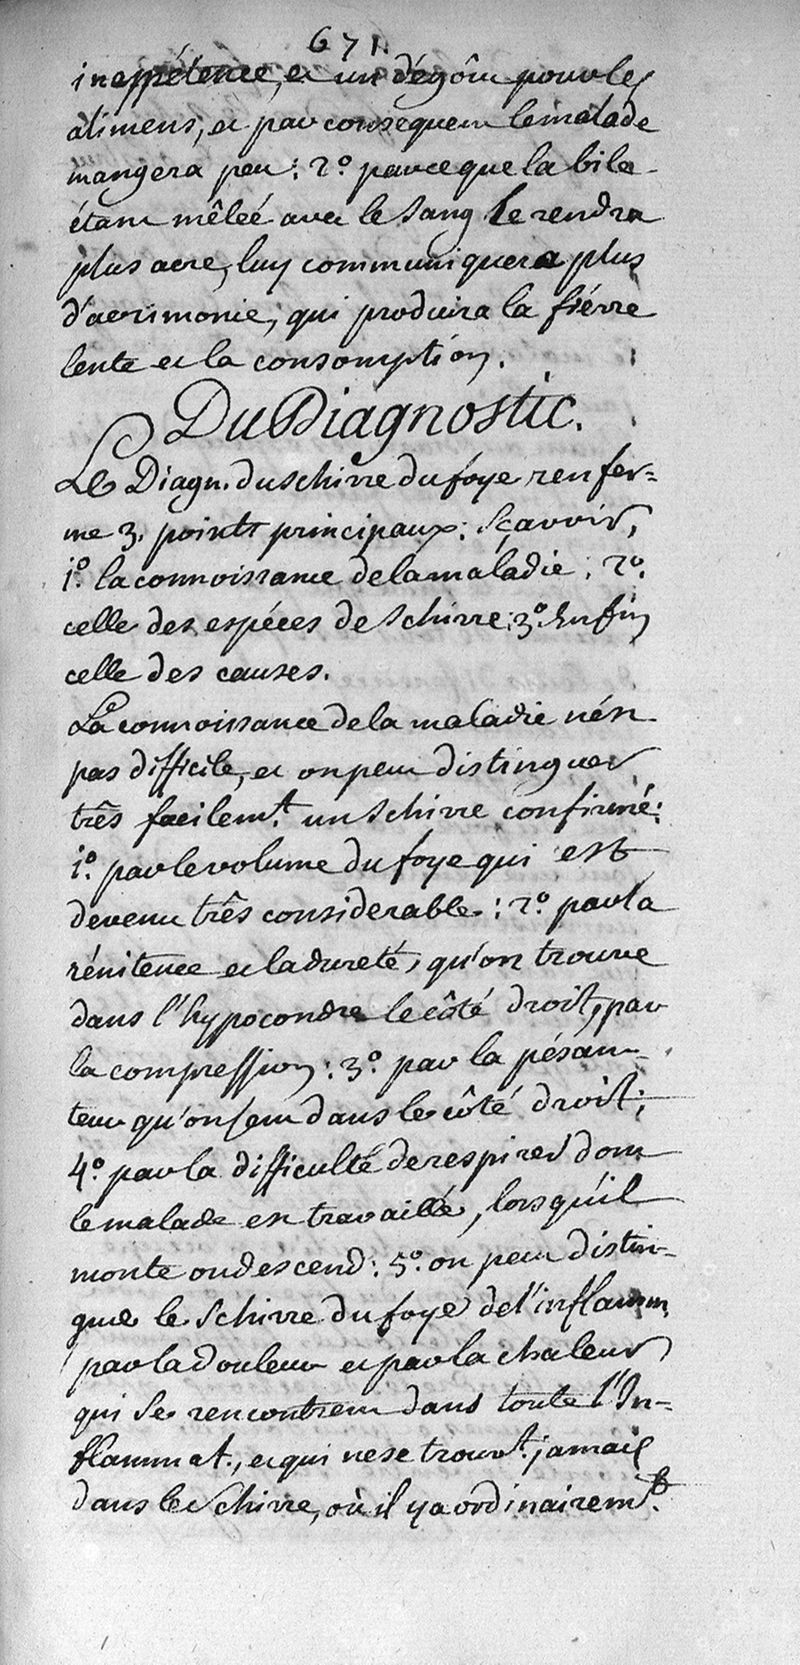 671.
inappétence, et un dégôut pour les
alimens, et par consequent le malade
mangera peu: 2.º parceque la bile
étant mêleé avec le sang le rendra
plus acre, luy communiquera plus
d'acrimonie, qui produira la fiévre
lente et la consomption.
Du Diagnostic.
Le Diagn. du schirre du foye renfer=
me 3. points principaux: sçavoir,
1.º la connoissance de la maladie: 2.º
celle des espéces de schirre: 3.º Enfin
celle des causes.
La connoissance de la maladie n'ést
pas difficile, et on peut distinguer
três facilem.t un schirre confirmé:
1.º par le volume du foye qui est
devenu três considerable: 2.º par la
rénitence et la dureté, qu'on trouve
dans l'hypocondre le côté droit, par
la compression: 3.º par la pésan=
teur qu'on sent dans le côté droit;
4.º par la difficulté de respirer dont
le malade est travaillé, lorsqu'il
monte ou descend: 5.º on peut distin=
guer le schirre du foye de l'inflamm.
par la douleur et par la chaleur
qui se rencontrent dans toute l'In=
flammat., et qui ne se trouv.t jamais
dans le schirre, où il y a ordinairem.t